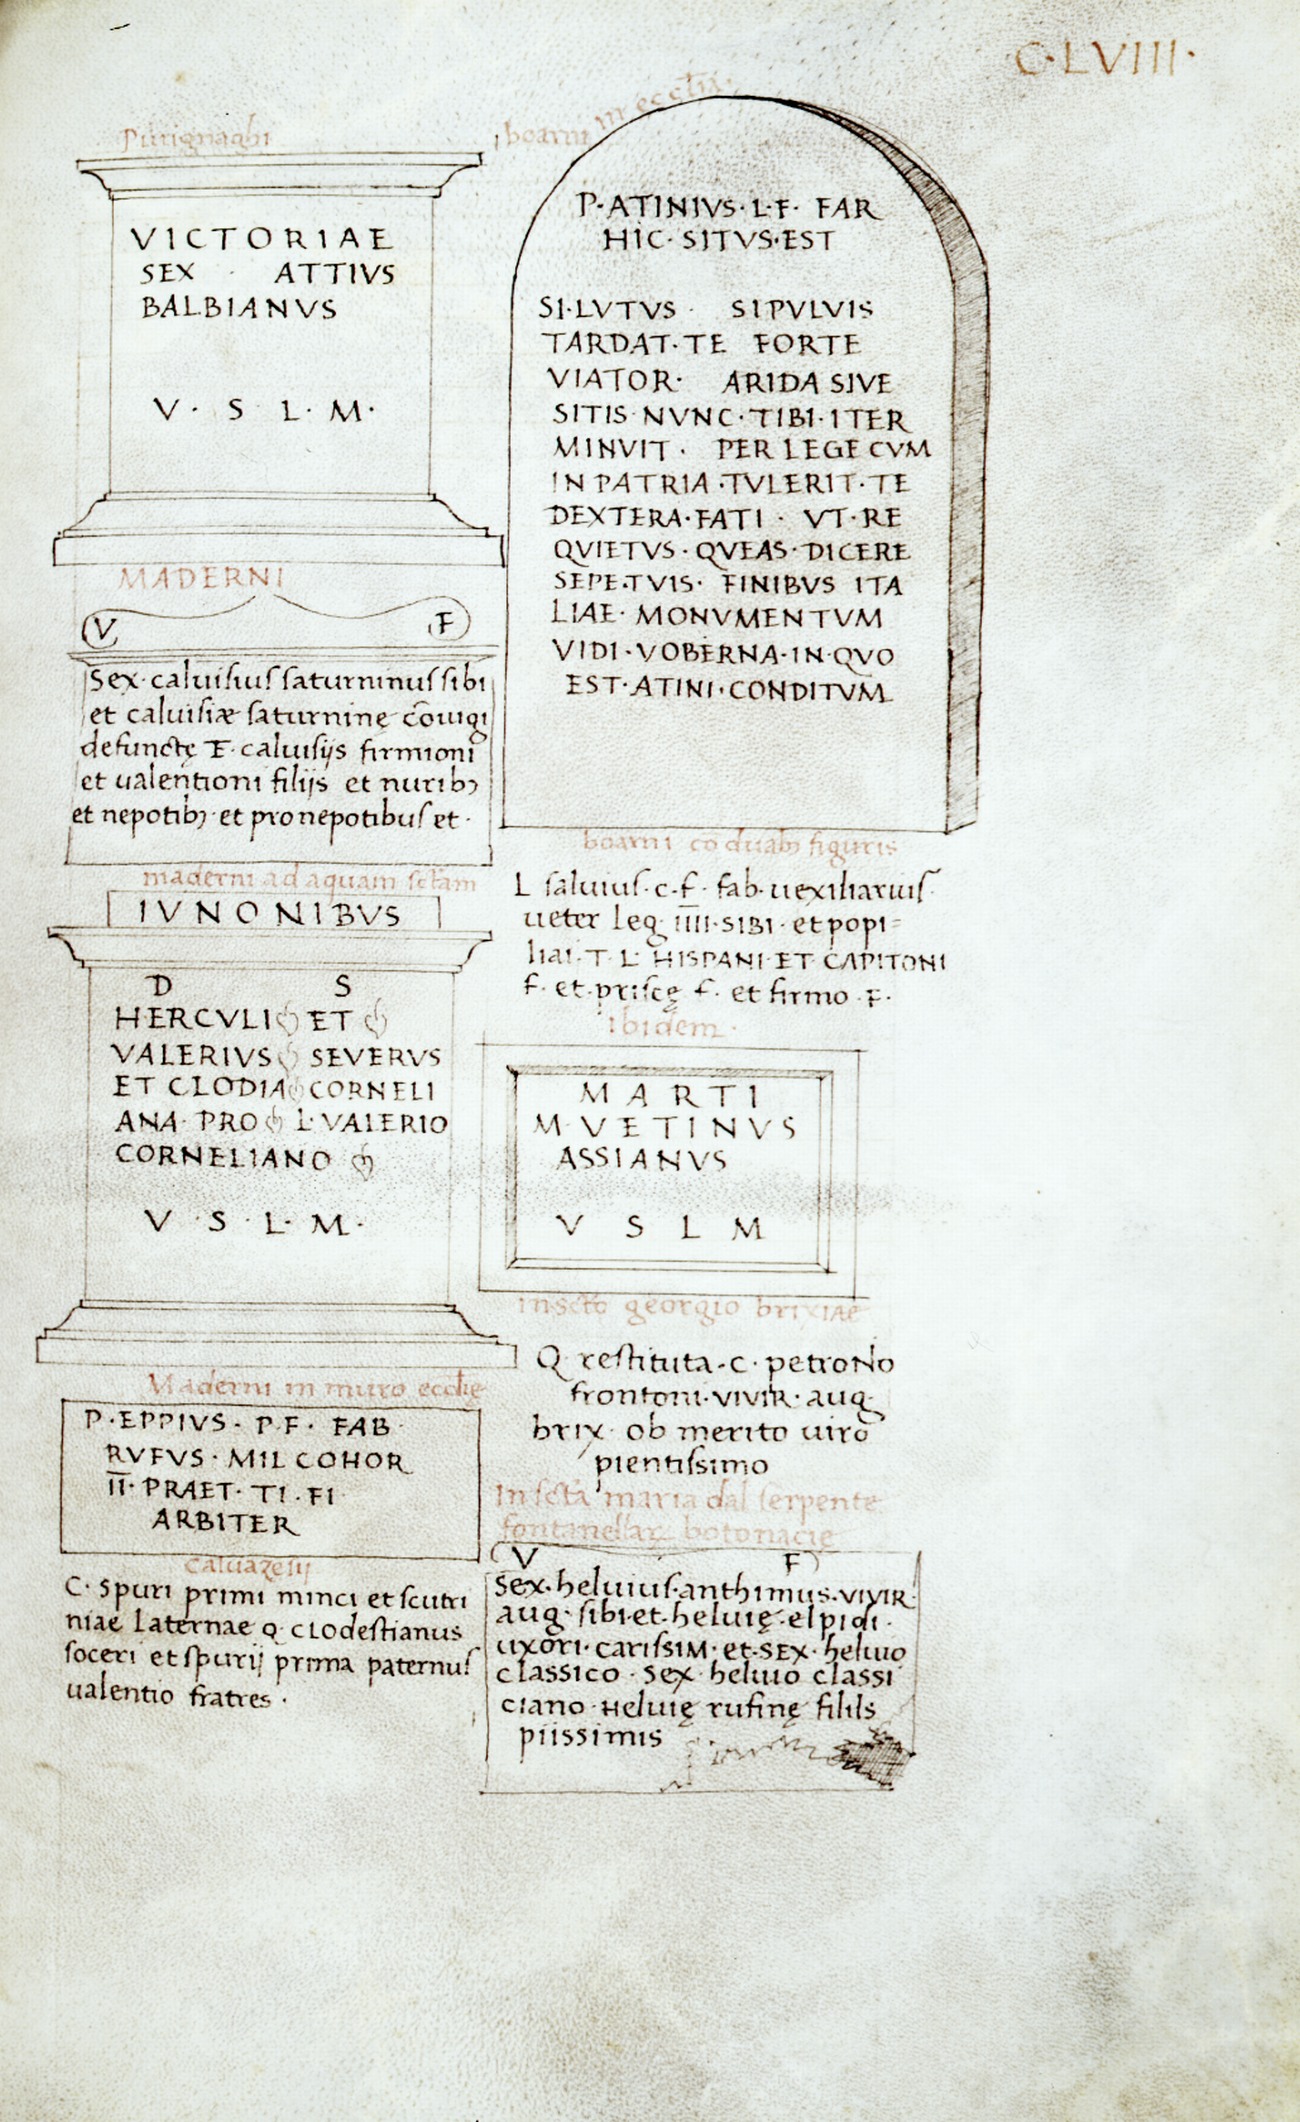 C·LVIII·
Putignaghi
VICTORIAE
SEX · ATTIVS
BALBIANVS
V · S L · M ·
MADERNI
V F
Sex· caluisius saturninus sibi
et caluisiæ saturninę cōiugi
defunctę E· caluisijs firmioni
et ualentioni filijs et nuribꝫ
et nepotibꝫ· et pronepotibus et ·
maderni ad aquam sctam
IVNONIBVS
D S
HERCVLI ET
VALERIVS SEVERVS
ET CLODIA CORNELI
ANA· PRO L·VALERIO
CORNELIANO
V · S · L · M ·
Maderni in muro ecclię
P · EPPIVS · P·F · FAB ·
RVFVS · MIL COHOR
I̅I̅· PRAET· TI · FI
ARBITER
Caluazesij
C· Spuri primi minci et scutri
niae Laternae Q· CLodestianus
soceri et spurij prima paternus
ualentio fratres ·
boarni in ecclīa·
P·ATINIVS·L·F· FAR
HIC·SITVS·EST
SI·LVTVS · SIPVLVIS
TARDAT·TE FORTE
VIATOR· ARIDA SIVE
SITIS NVNC·TIBI·ITER
MINVIT · PER LEGE CVM
IN PATRIA·TVLERIT·TE
DEXTERA·FATI · VT·RE
QVIETVS·QVEAS·DICERE
SEPE·TVIS· FINIBVS ITA
LIAE· MONVMENTVM
VIDI·VOBERNA·IN·QVO
EST·ATINI·CONDITVM
boarni co duabꝫ figuris
L saluius·c·f· fab· uexiliarius·
ueter Leg i̅i̅i̅i̅·SIBI· et popi=
liai·T· L· HISPANI·ET CAPITONI
f· et·priscę f· et firmo ·F·
ibidem·
MARTI
M·VETINVS
ASSIANVS
V S L M
in scto georgio brixiae
Q restituta·c· petroNo
frontoni·VIVIR· aug
brix· ob merito uiro
pientissimo
In scta maria dal serpente
fontanellar botonacie
V F
Sex·heluius·anthimus·VIVIR·
aug· sibi·et·heluię·elpidi·
uxori·carissIM·et·SEX· heluio
classico·Sex·heluio classi
ciano·Heluię rufinę filils
piissimis